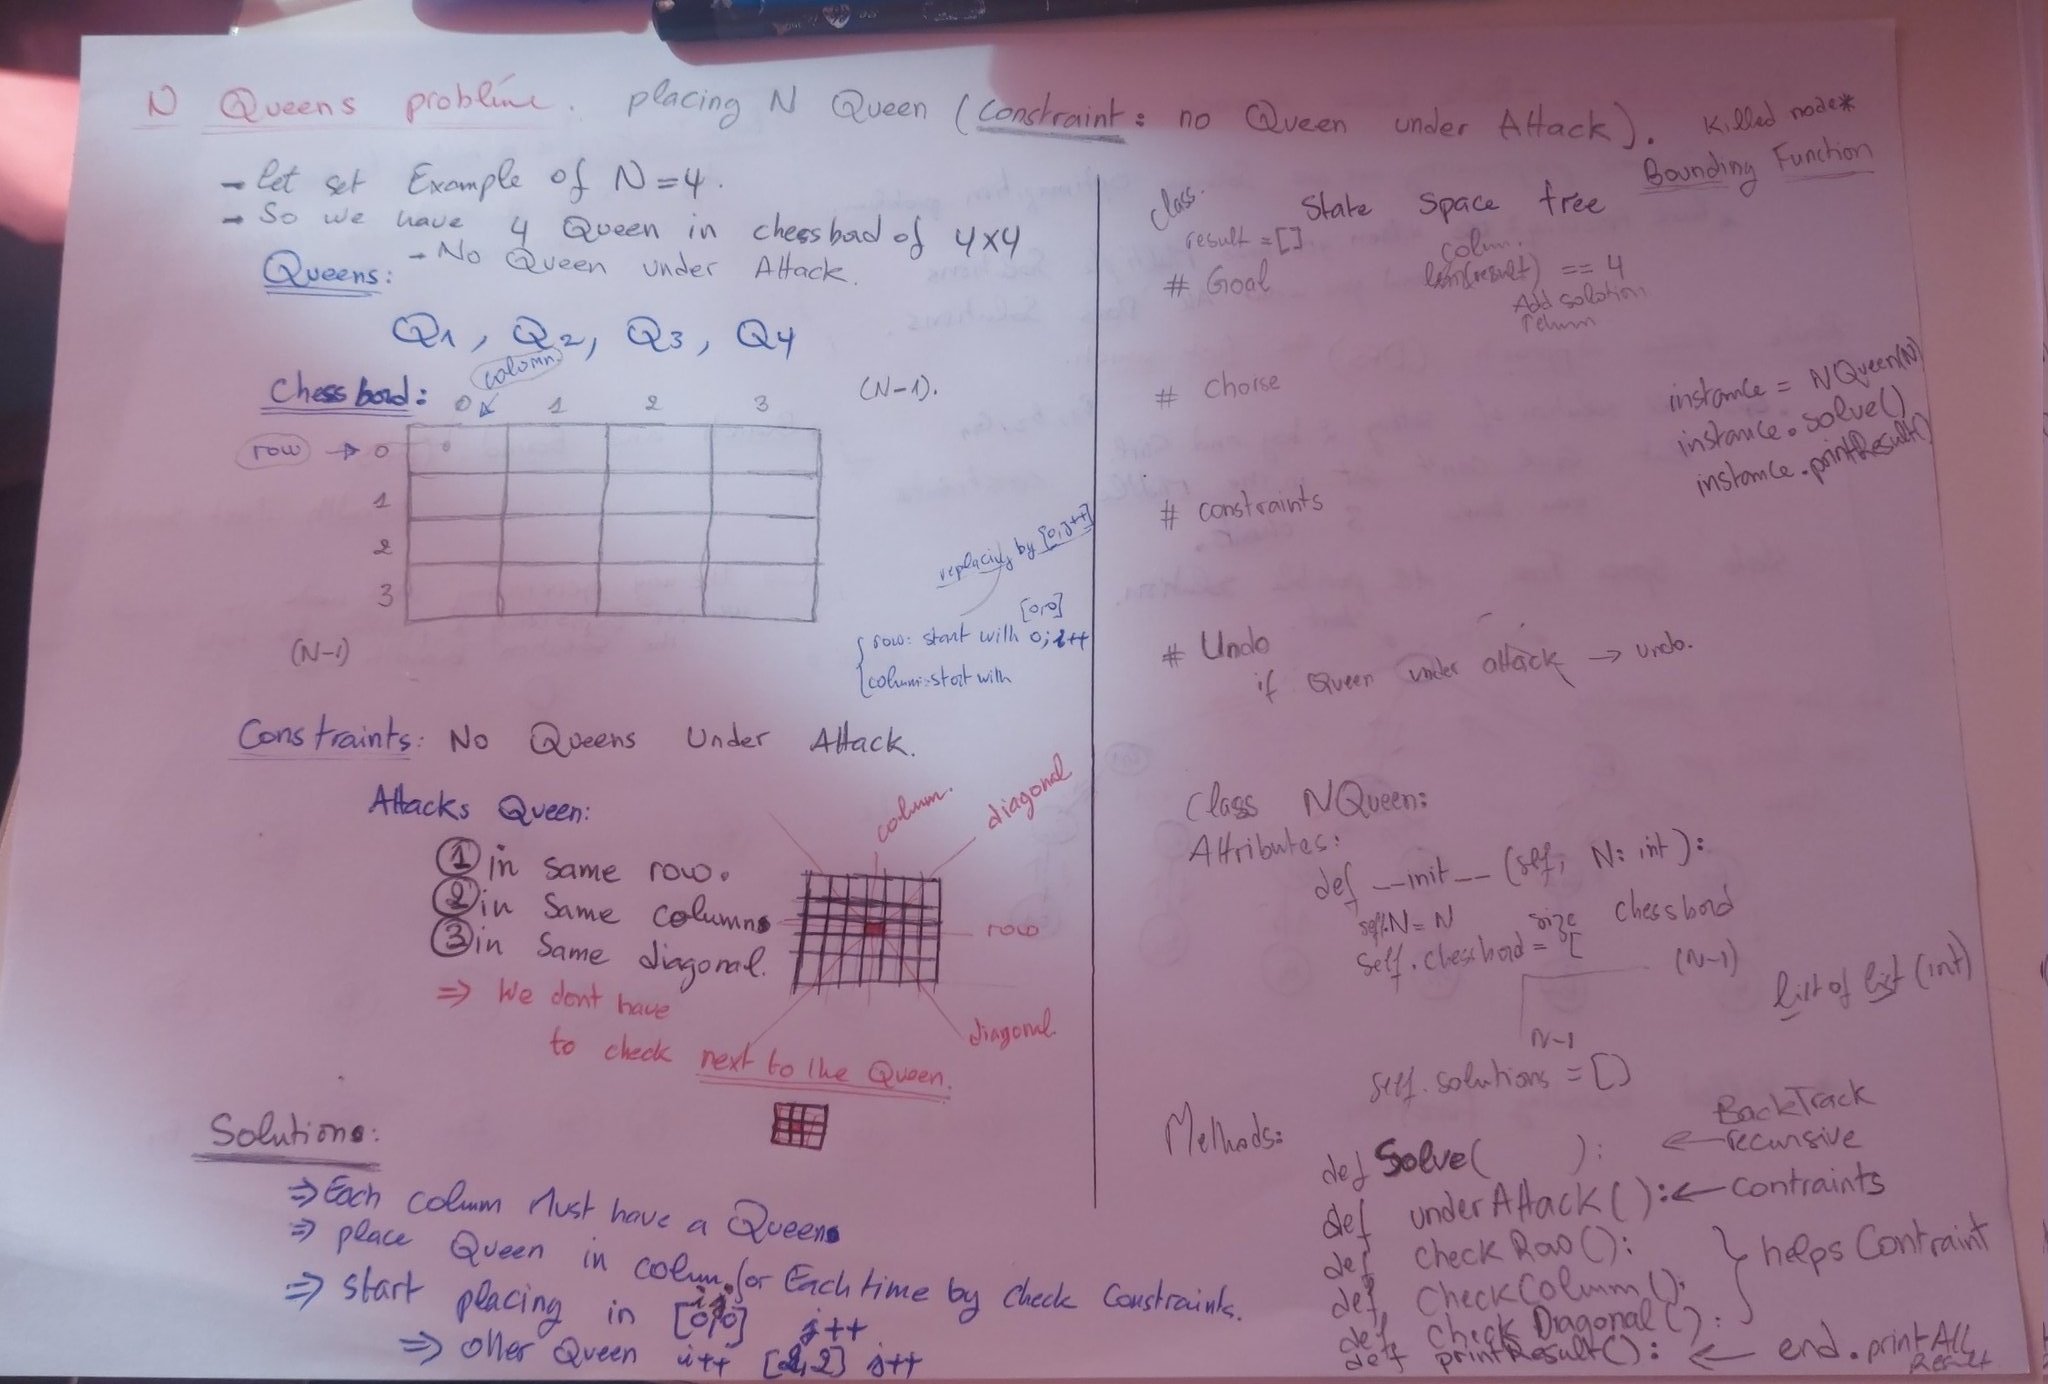 N Queens problème. placing N Queen (constraint: no Queen under Attack).
- let set Example of N=4.
- So we have 4 Queen in chessbord of 4x4
- No Queen under Attack.
Queens:
Q1, Q2, Q3, Q4
column.
Chessbord:
0 1 2 3
(N-1).
row → 0
1
2
3
(N-1)
replacing by [0,j++]
[0,0]
row: start with 0; i++
column: start with
Constraints: No Queens Under Attack.
Attacks Queen:
① in same row.
② in same column
③ in same diagonal.
column.
diagonal
row
diagonal.
⇒ We dont have
to check next to the Queen.
Solutions:
⇒ Each column Must have a Queen
⇒ place Queen in colum. for Each time by check Constraints.
⇒ start placing in [0,0] j++
i j
⇒ other Queen i++ [2,2] j++
Killed node*
Bounding Function
class.
State Space tree
result = []
colum.
# Goal
len(result) == 4
Add solution
return
# choise
instance = NQueen(N)
instance.solve()
instance.printResult()
# constraints
# Undo
if Queen under attack → undo.
Class NQueen:
Attributes:
def __init__ (self, N: int):
self.N = N
size chessbord
self.chessbord = [
(N-1)
list of list (int)
N-1
self.solutions = []
Methods:
def Solve( ): ← BackTrack
recursive
def underAttack(): ← contraints
def checkRow():
def checkColumn():
def check Diagonal():
helps Contraint
def printResult(): ← end. printAll
Result